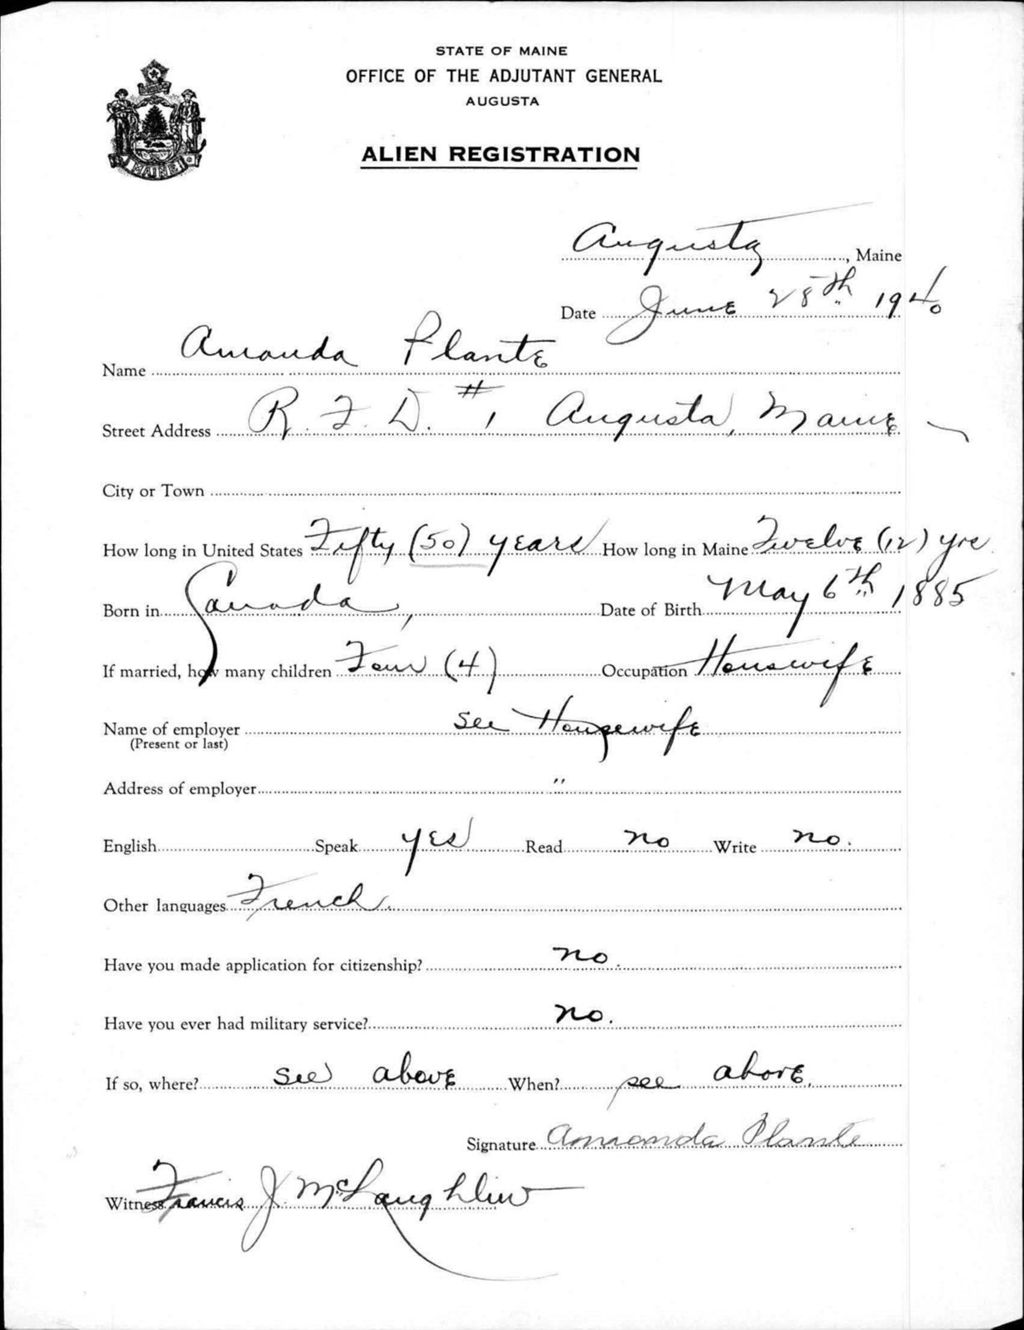 STATE OF MAINE
OFFICE OF THE ADJUTANT GENERAL
AUGUSTA
ALIEN REGISTRATION
MAINE
Augusta, Maine
Date June 28th 1940
Name Amanda Plante
Street Address R. F. D. #1 Augusta, Maine
City or Town
How long in United States Fifty (50) years How long in Maine Twelve (12) yrs
Born in Canada, Date of Birth May 6th 1885
If married, how many children Four (4) Occupation Housewife
Name of employer see Housewife
(Present or last)
Address of employer "
English Speak yes Read no Write no.
Other languages French.
Have you made application for citizenship? no.
Have you ever had military service? no.
If so, where? see above When? see above.
Signature Amanda Plante
Witness Francis J McLaughlin